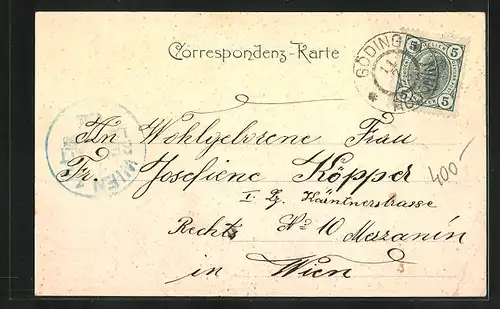 Correspondenz-Karte
GÖDING
5 5
5 5
WIEN
An Wohlgeborene Frau
Fr. Josefiene Köpper
I. Bz. Kärntnerstrasse
400
Rechts No 10 Mezanin
in Wien